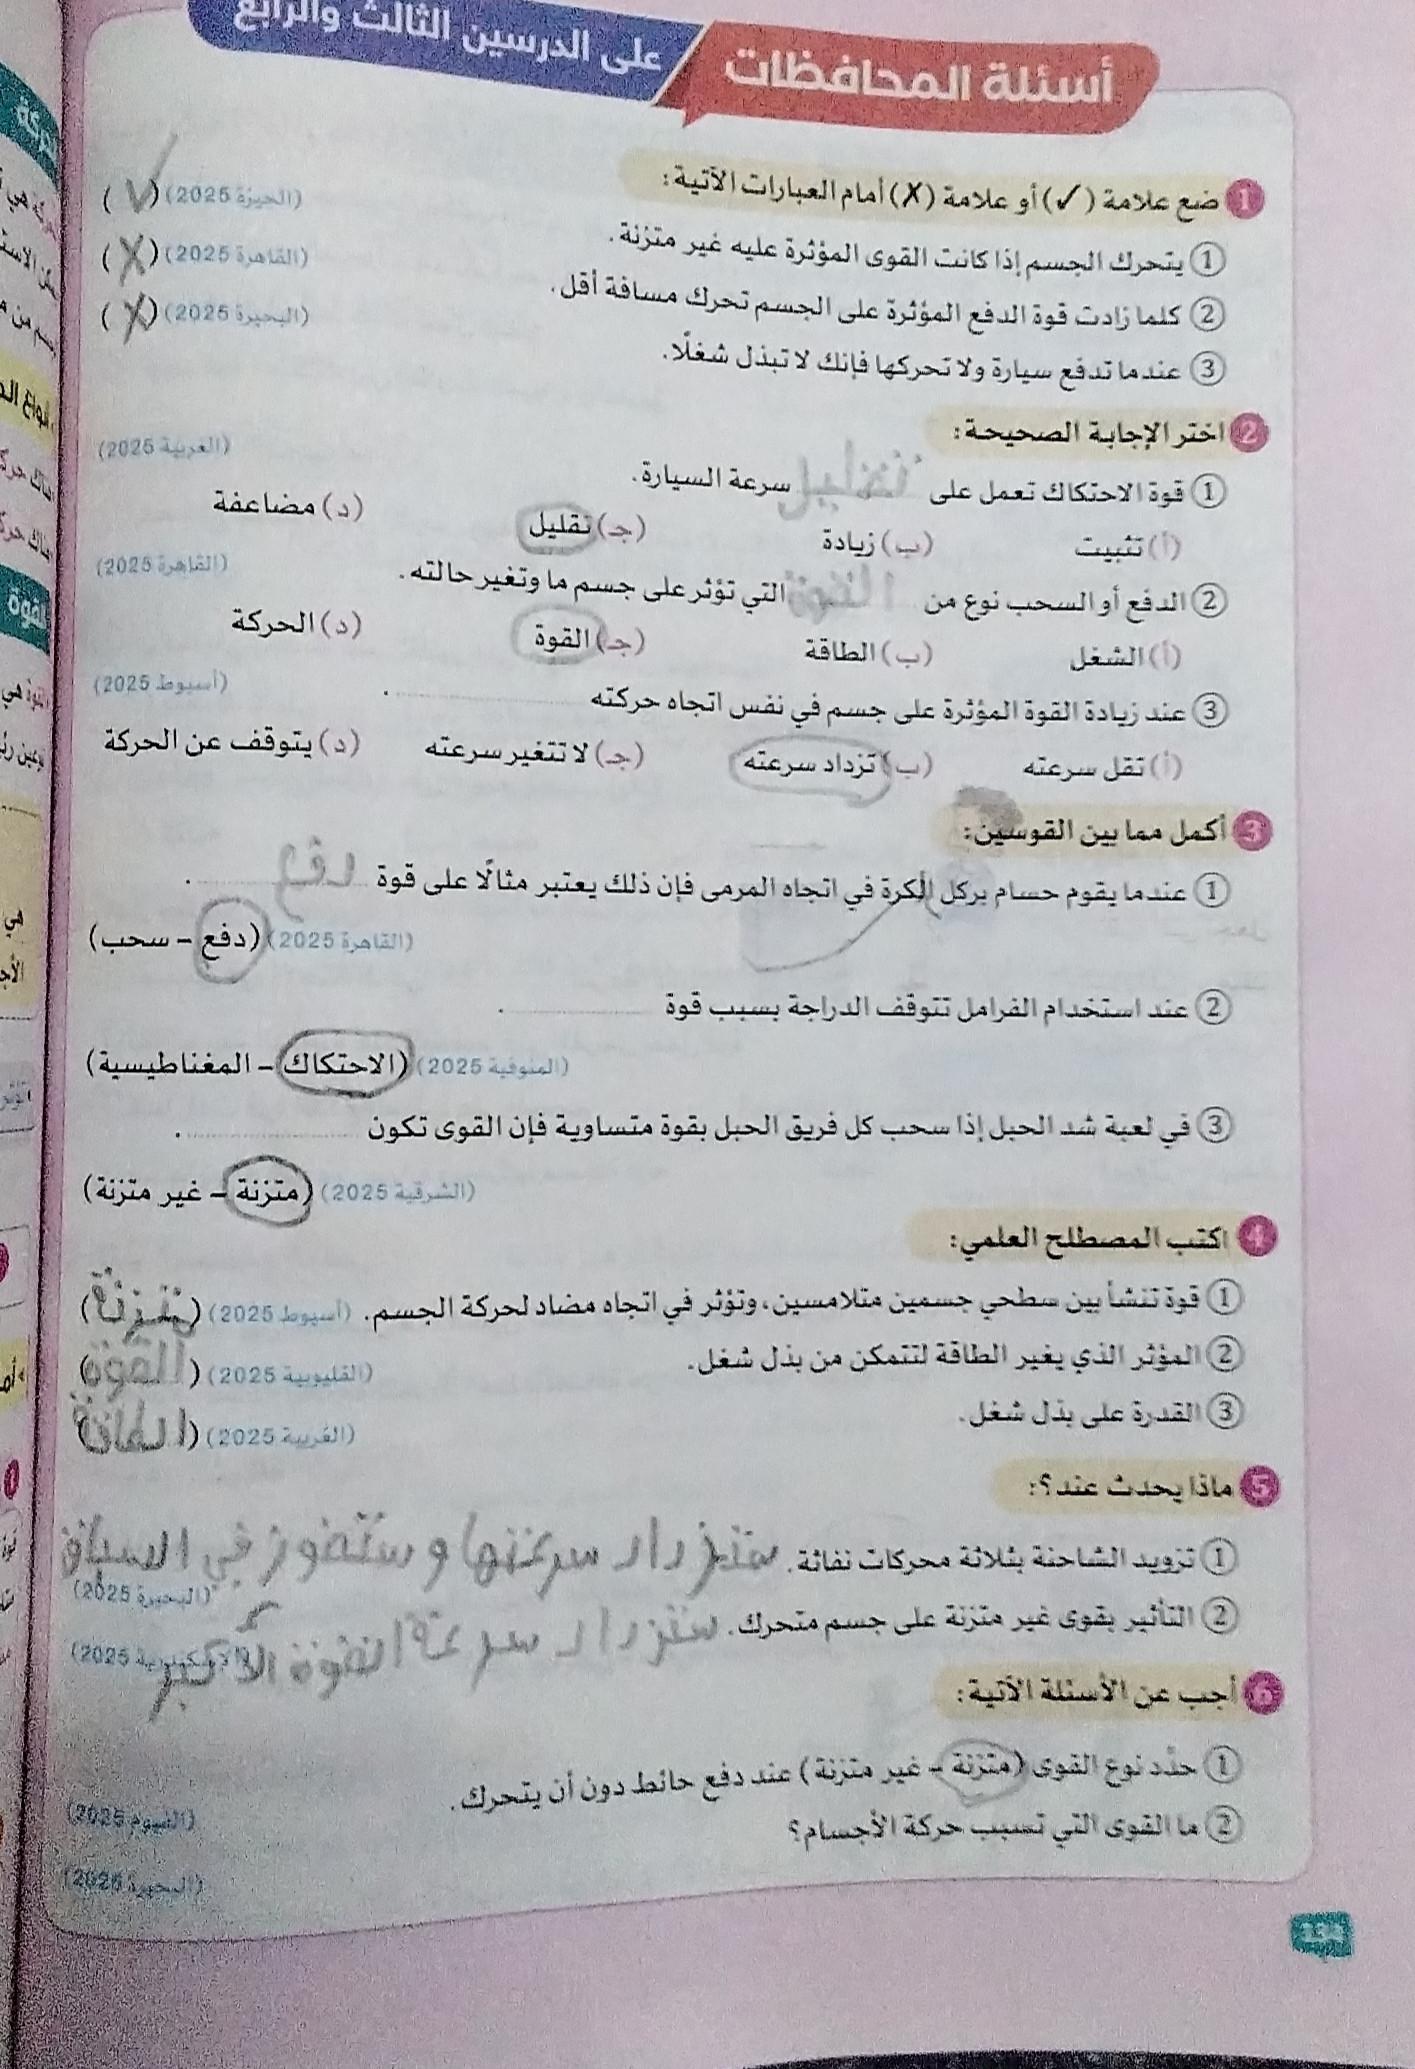 أسئلة المحافظات على الدرسين الثالث والرابع
1 ضع علامة (✓) أو علامة (✗) أمام العبارات الآتية:
① يتحرك الجسم إذا كانت القوى المؤثرة عليه غير متزنة. (الجيزة 2025) (✓)
② كلما زادت قوة الدفع المؤثرة على الجسم تحرك مسافة أقل. (القاهرة 2025) (X)
③ عندما تدفع سيارة ولا تحركها فإنك لا تبذل شغلًا. (البحيرة 2025) (X)
2 اختر الإجابة الصحيحة:
① قوة الاحتكاك تعمل على تقليل سرعة السيارة. (الغربية 2025)
(أ) تثبيت (ب) زيادة (جـ) تقليل (د) مضاعفة
② الدفع أو السحب نوع من القوة التي تؤثر على جسم ما وتغير حالته. (القاهرة 2025)
(أ) الشغل (ب) الطاقة (جـ) القوة (د) الحركة
③ عند زيادة القوة المؤثرة على جسم في نفس اتجاه حركته ............ . (أسيوط 2025)
(أ) تقل سرعته (ب) تزداد سرعته (جـ) لا تتغير سرعته (د) يتوقف عن الحركة
3 أكمل مما بين القوسين:
① عندما يقوم حسام بركل الكرة في اتجاه المرمى فإن ذلك يعتبر مثالًا على قوة دفع .
(القاهرة 2025) (دفع – سحب)
② عند استخدام الفرامل تتوقف الدراجة بسبب قوة ............ .
(المنوفية 2025) (الاحتكاك – المغناطيسية)
③ في لعبة شد الحبل إذا سحب كل فريق الحبل بقوة متساوية فإن القوى تكون ............ .
(الشرقية 2025) (متزنة – غير متزنة)
4 اكتب المصطلح العلمي:
① قوة تنشأ بين سطحي جسمين متلامسين، وتؤثر في اتجاه مضاد لحركة الجسم. (أسيوط 2025) (متزنة)
② المؤثر الذي يغير الطاقة لتتمكن من بذل شغل. (القليوبية 2025) (القوة)
③ القدرة على بذل شغل. (الغربية 2025) (الطاقة)
5 ماذا يحدث عند؟:
① تزويد الشاحنة بثلاثة محركات نفاثة. ستزداد سرعتها وستفوز في السباق
(البحيرة 2025)
② التأثير بقوى غير متزنة على جسم متحرك. ستزداد سرعة القوة الأكبر
(الإسكندرية 2025)
6 أجب عن الأسئلة الآتية:
① حدِّد نوع القوى (متزنة – غير متزنة) عند دفع حائط دون أن يتحرك. (الفيوم 2025)
② ما القوى التي تسبب حركة الأجسام؟ (البحيرة 2025)